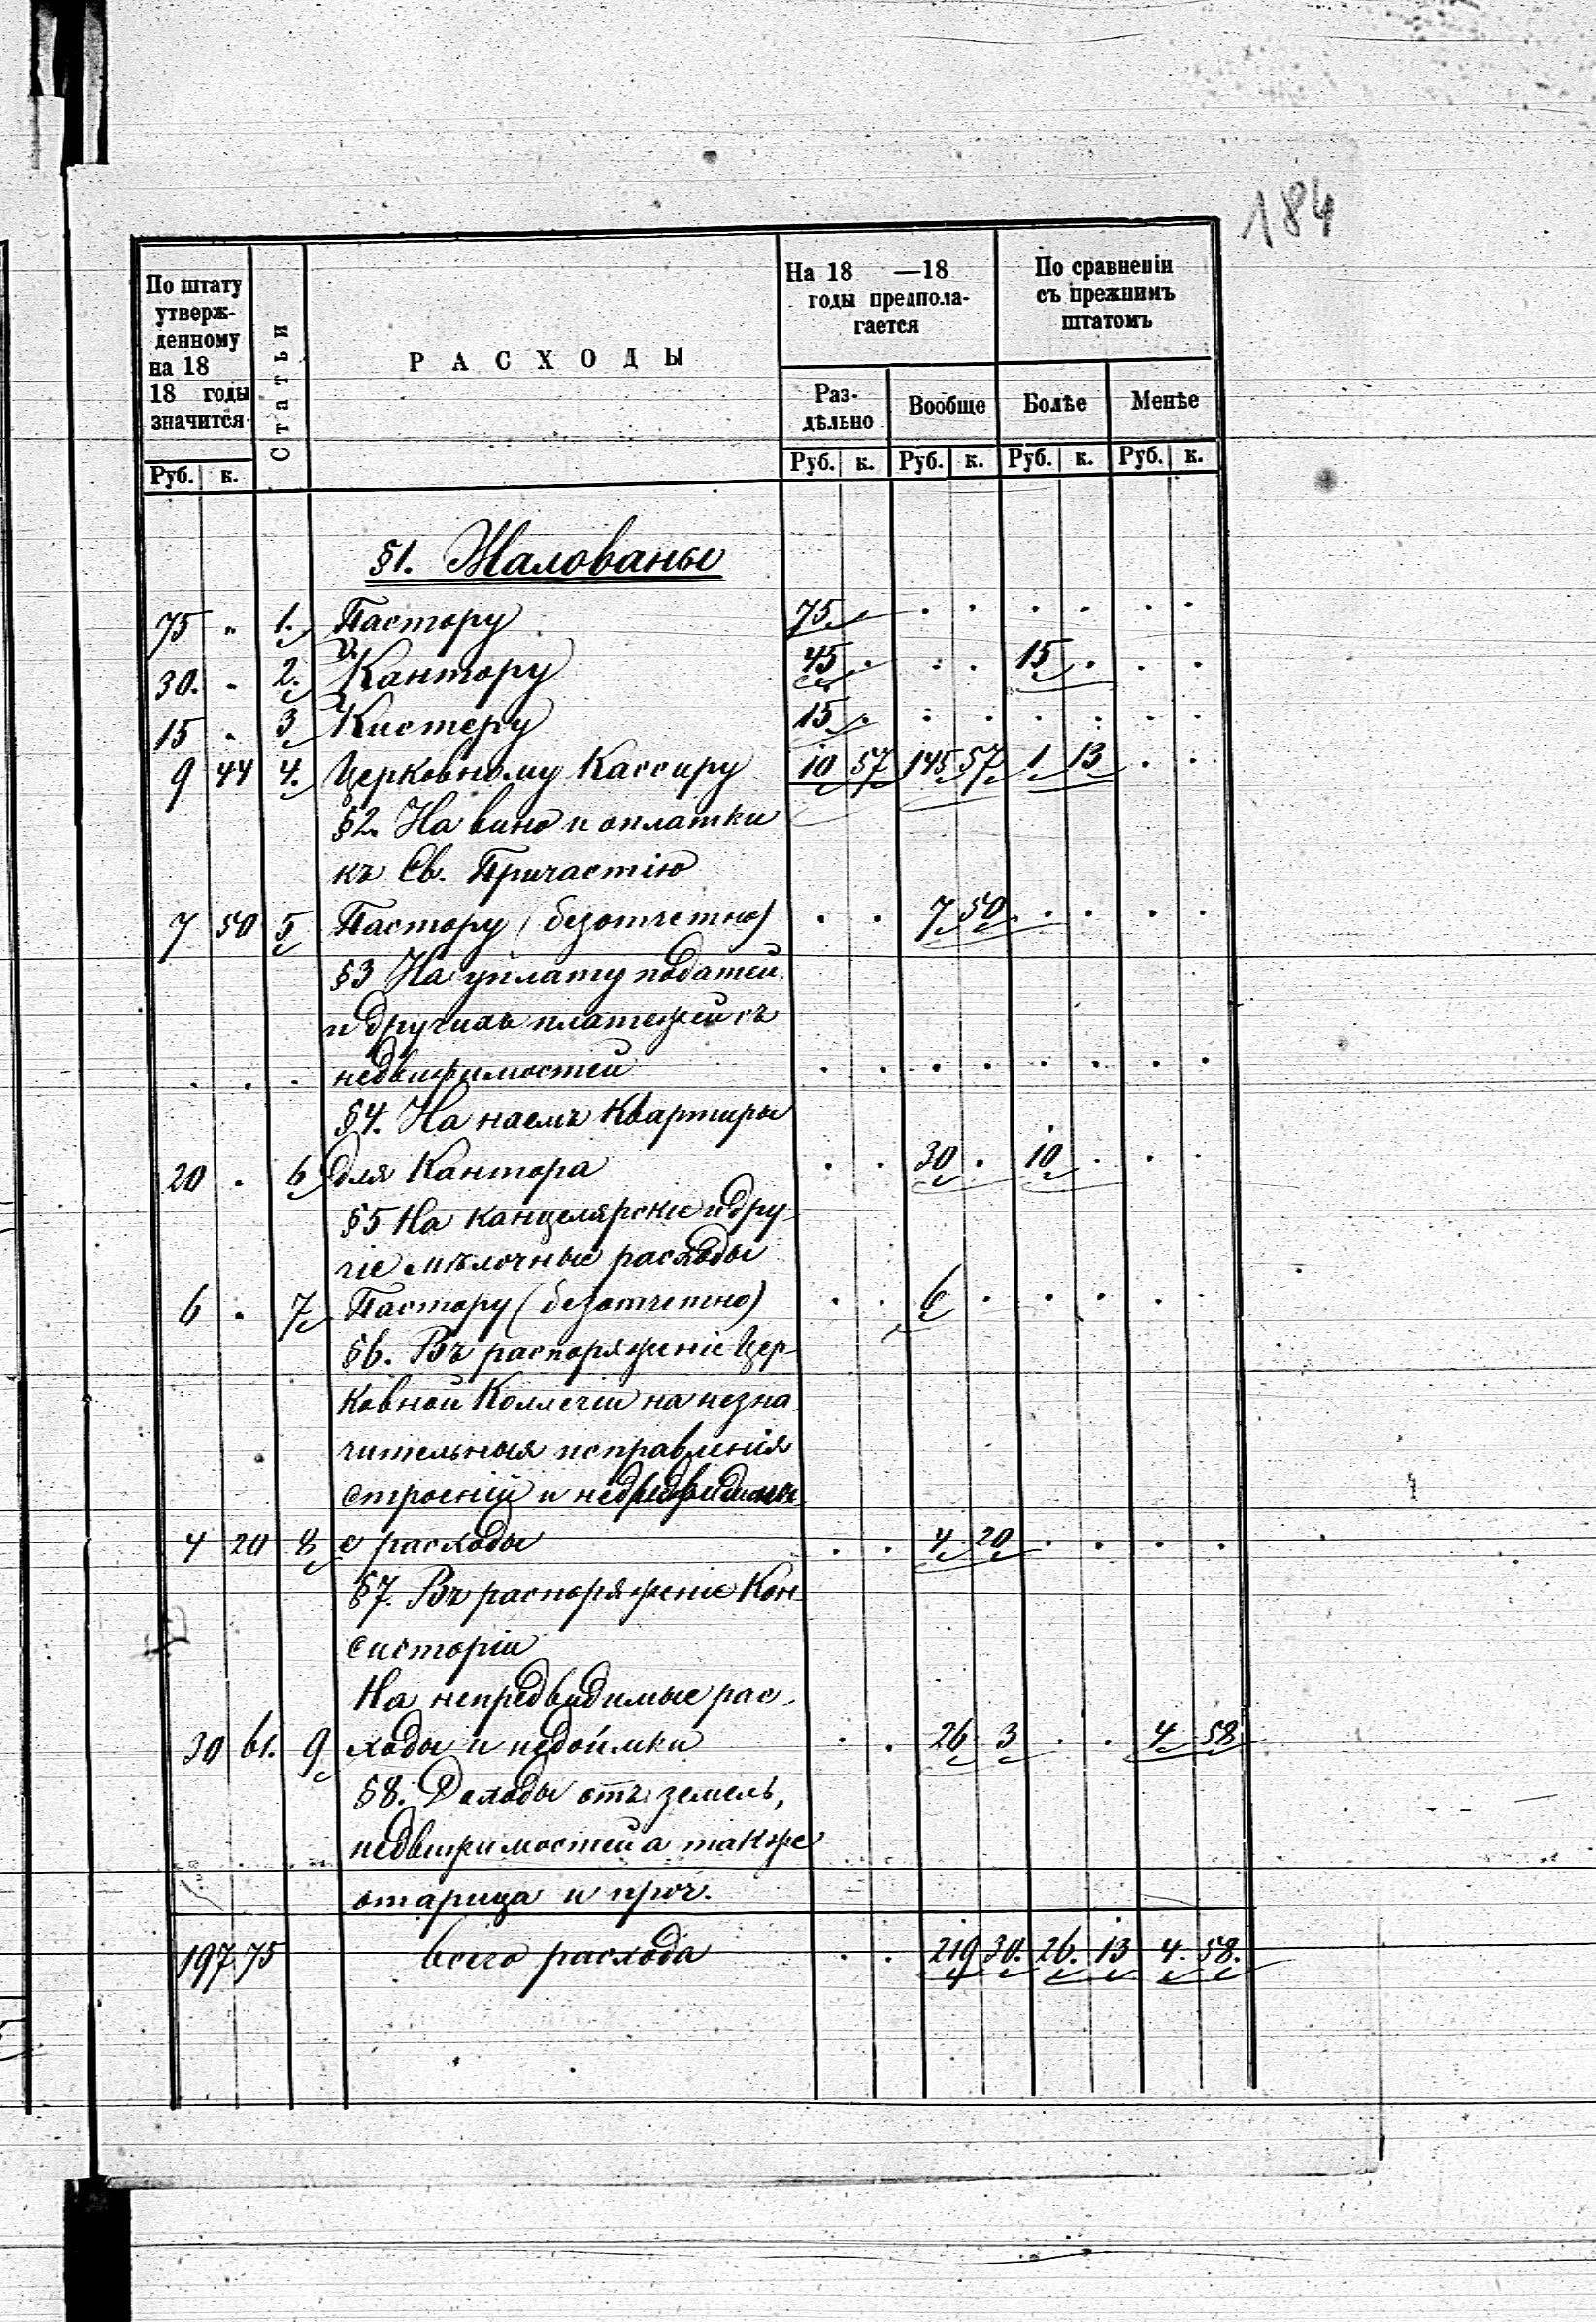 184
По штату утверж- денному на 18 18 годы значится
Статьи
РАСХОДЫ
На 18 —18 годы предпола- гается
По сравненіи съ прежнимъ штатомъ
Раз- дѣльно Вообще Болѣе Менѣе
Руб. к. Руб. к. Руб. к. Руб. к. Руб. к.
§1. Жалованье
75 " 1. Пастору 75 . . . . . . .
30. " 2. Кантору 45 . . . 15 . . .
15 " 3 Кистеру 15 . . . . . . .
9 44 4. Церковному Кассиру 10 57 145 57 1 13 . .
§2. На вино и оплатки
къ Св. Причастію
7 50 5 Пастору (безотчетно) . . 7 50 . . . .
§3 На уплату податей
и другихъ платежей съ
. . . недвижимостей . . . . . . . .
§4. На наемъ Квартиры
20 . 6 для Кантора . . 30 . 10 . . .
§5 На канцелярскіе и дру-
гіе мѣлочные расходы
6 . 7 Пастору (безотчетно) . . 6 . . . . .
§6. Въ распоряженіе Цер-
ковной Коллегіи на незна-
чительныя исправленія
строеній и
4 20 8 е расходы . . 4 20 . . . .
§7. Въ распоряженіе Кон-
систоріи
На непредвидимые рас-
30 61. 9 ходы и недоимки . . 26 3 . . 4 58
§8. Доходы отъ земель,
недвижимостей а также
и проч.
197 75 всего расхода . . 219 30. 26. 13 4. 58.